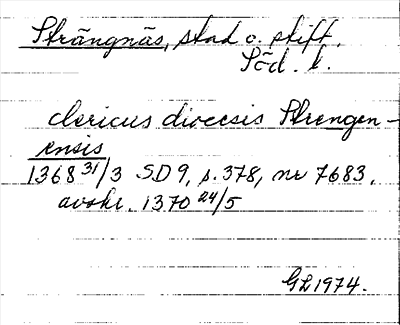 Strängnäs, stad o. stift.
Söd. l.
clericus diocesis Strengen-
ensis
1368 31/3 SD 9, s. 378, nr 7683.
avskr. 1370 24/5
GL 1974.